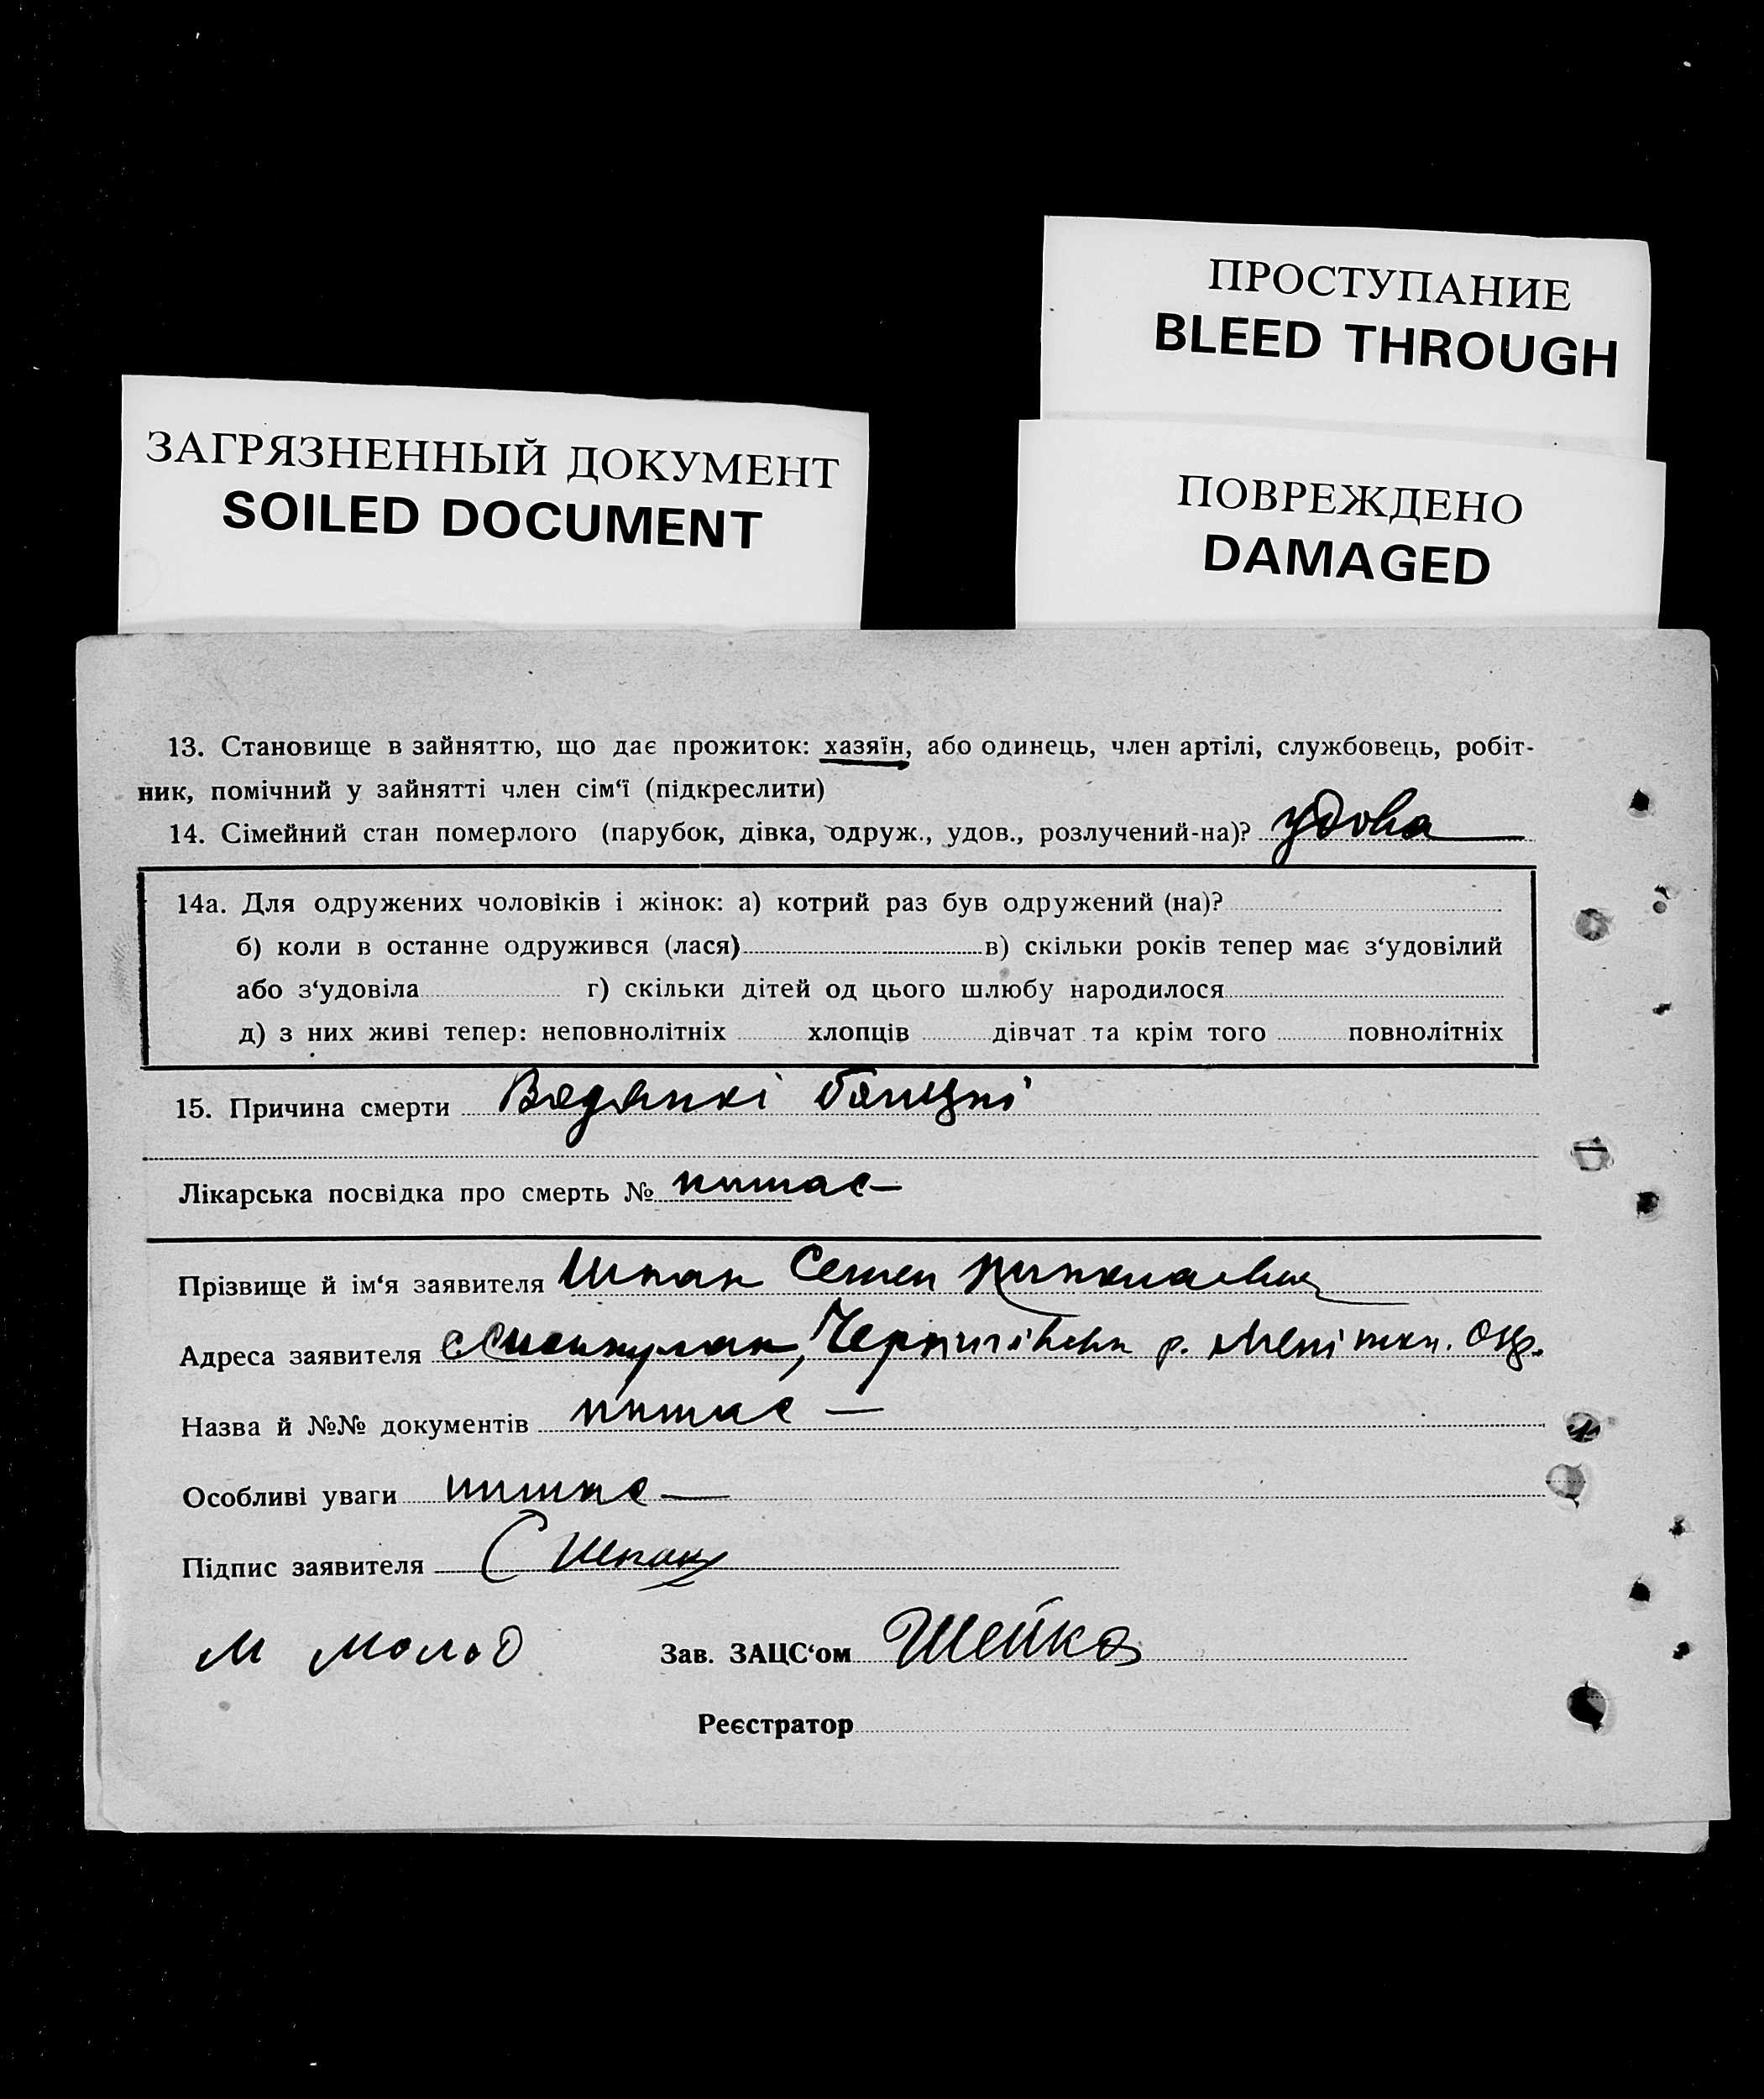 ПРОСТУПАНИЕ
BLEED THROUGH
ЗАГРЯЗНЕННЫЙ ДОКУМЕНТ
SOILED DOCUMENT
ПОВРЕЖДЕНО
DAMAGED
13. Становище в зайняттю, що дає прожиток: хазяїн, або одинець, член артілі, службовець, робіт-
ник, помічний у зайнятті член сім‘ї (підкреслити)
14. Сімейний стан померлого (парубок, дівка, одруж., удов., розлучений-на)? удова
14а. Для одружених чоловіків і жінок: а) котрий раз був одружений (на)?
б) коли в останне одружився (лася) в) скільки років тепер має з‘удовілий
або з‘удовіла г) скільки дітей од цього шлюбу народилося
д) з них живі тепер: неповнолітніх хлопців дівчат та крім того повнолітніх
15. Причина смерти
Лікарська посвідка про смерть № немає
Прізвище й ім‘я заявителя Шпак Семен
Адреса заявителя р. Меліт. Окр.
Назва й №№ документів немає
Особливі уваги немає
Підпис заявителя С Шпак
М Молод Зав. ЗАЦС‘ом Шейко
Реєстратор